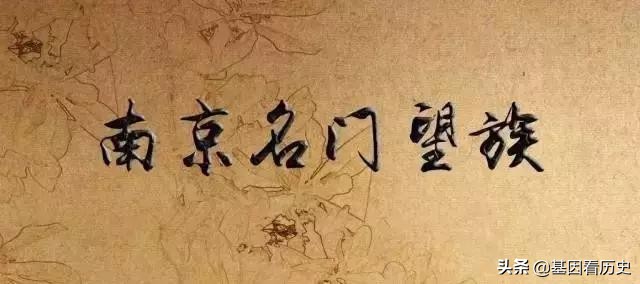 南京名门望族
头条 @基因看历史